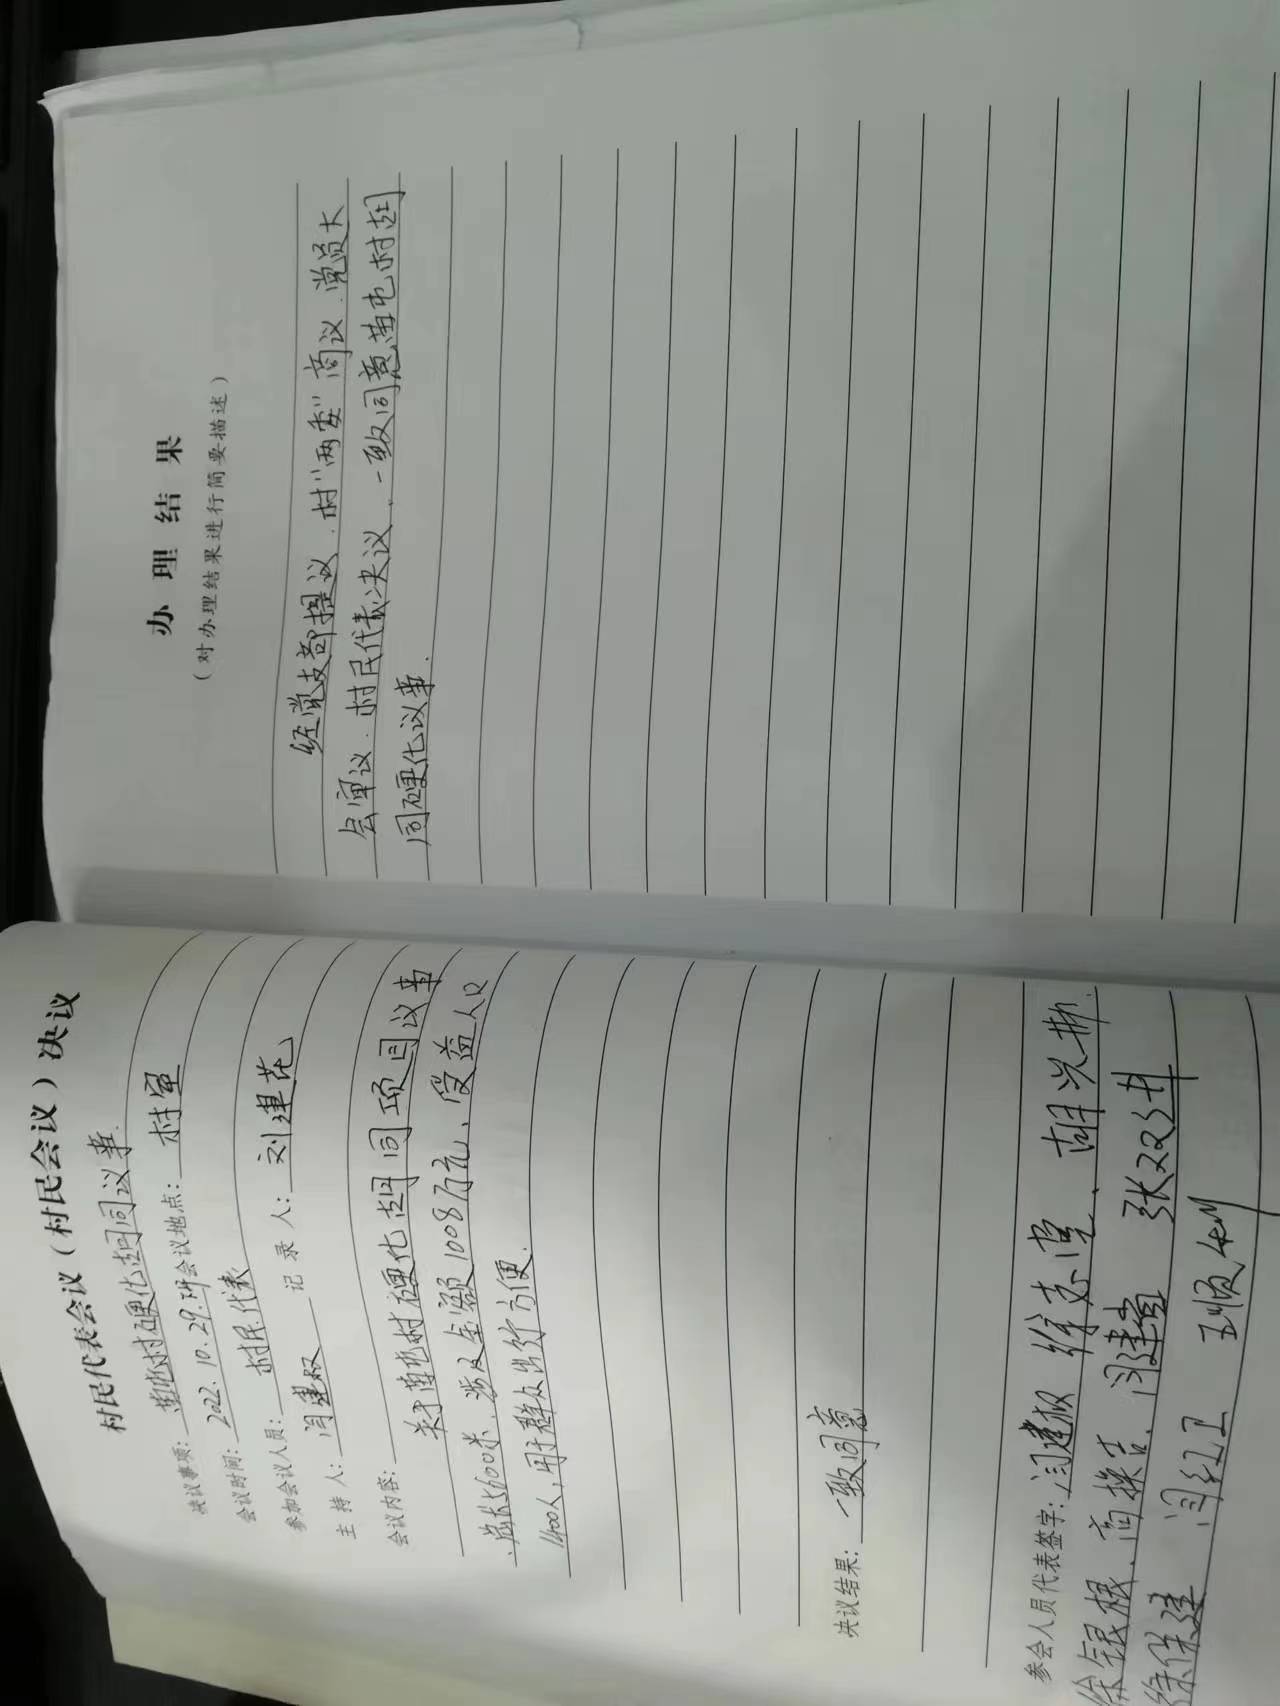 村民代表会议（村民会议）决议
决议事项：苗屯村硬化胡同议事.
会议时间：2022.10.29. 会议地点：村室
参加会议人员：村民代表
主持人：闫建权 记录人：刘建花
会议内容：
关于苗屯村硬化胡同项目议事
总长5600米，涉及金额100.8万元、受益人口
1400人，用于群众出行方便.
决议结果：一致同意
参会人员代表签字：闫建权 徐志堂、胡兴
徐银根、高操吉、闫建堂 张双井
徐保建 闫红卫 王顺
办理结果
（对办理结果进行简要描述）
经党支部提议、村“两委”商议、党员大
会审议、村民代表决议、一致同意苗屯村胡
同硬化议事.